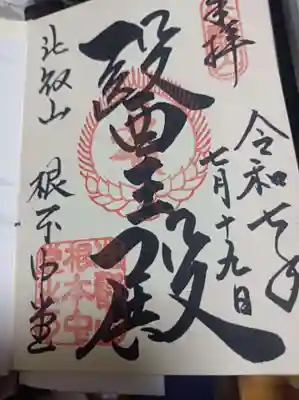 奉拝
令和七年
七月十九日
醫王殿
比叡山
根本中堂